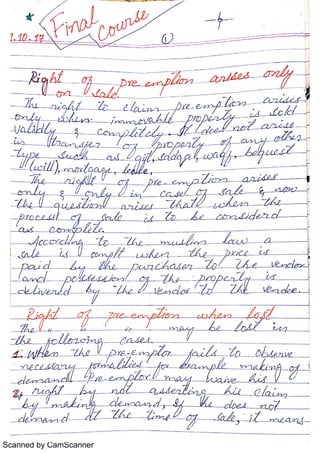 Final Course
2.10.17
①
Right of pre emption arises only
on sale
The right to claim preemption arises
only when immovable property is sold
validly & completely. It does not arise
in transfer of property of any other
type such as gift, sadqah, waqf, bequest
(will), mortgage, lease,
The right of pre-emption arises
only & only in case of sale & now
the question arises that when the
process of sale is to be considerd
as complete.
According to the muslim law a
sale is complt when the price is
paid by the purchaser to the vendor
and possession of the property is
delivered by the vendor to the vendee.
Right of pre-emption when lost
The " " " may be lost in
the following cases.
1. When the pre-emptor fails to observe
necessary formalities for example making of
demand. Pre-emptor may waive his
2, right by not asserting his claim
by making demand, If he does not
demand at the time of sale, it means
Scanned by CamScanner